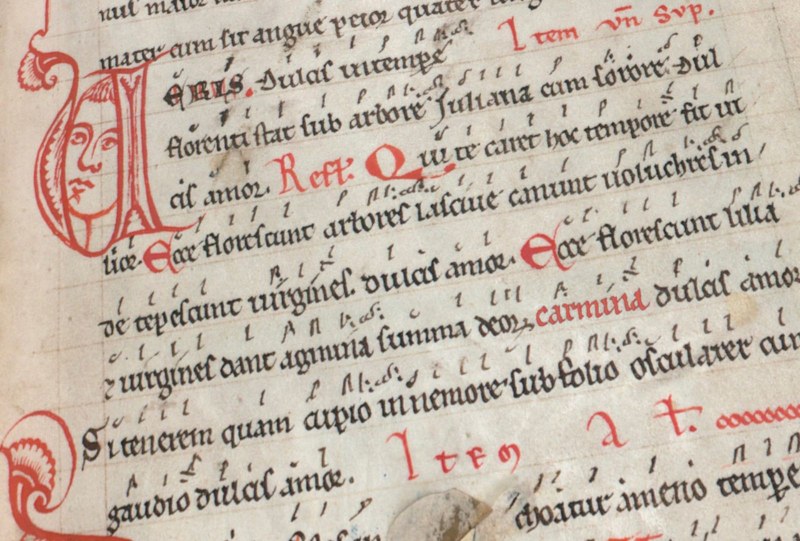 nus maior
mater cum sit angue peior quater
Item vn sup.
VERIS. dulcis in tempe
florenti stat sub arbore Juliana cum sorore. dul
cis amor. Refl. Qui te caret hoc tempore fit ui
lior. Ecce florescunt arbores lasciue canunt uoluchres in
de tepescunt uirgines. dulcis amor. Ecce florescunt lilia
⁊ uirgines dant agmina summa deoꝝ carmina dulcis amor
Si tenerem quam cupio in nemore sub folio oscularer cum
gaudio dulcis amor. Item
choatur ameno tempe